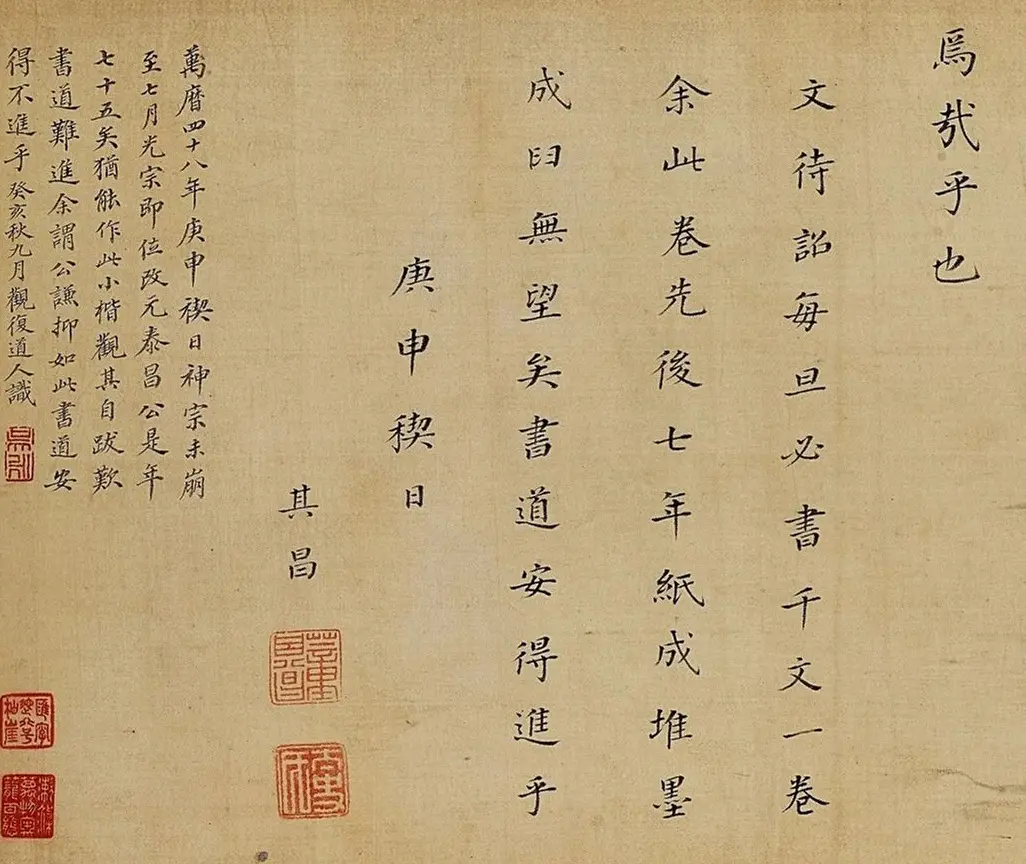 焉哉乎也
文待詔每旦必書千文一卷
余此卷先後七年紙成堆墨
成臼無望矣書道安得進乎
庚申稧日
其昌
萬曆四十八年庚申禊日神宗未崩
至七月光宗即位改元泰昌公是年
七十五矣猶能作此小楷觀其自跋歎
書道難進余謂公謙抑如此書道安
得不進乎癸亥秋九月觀復道人識